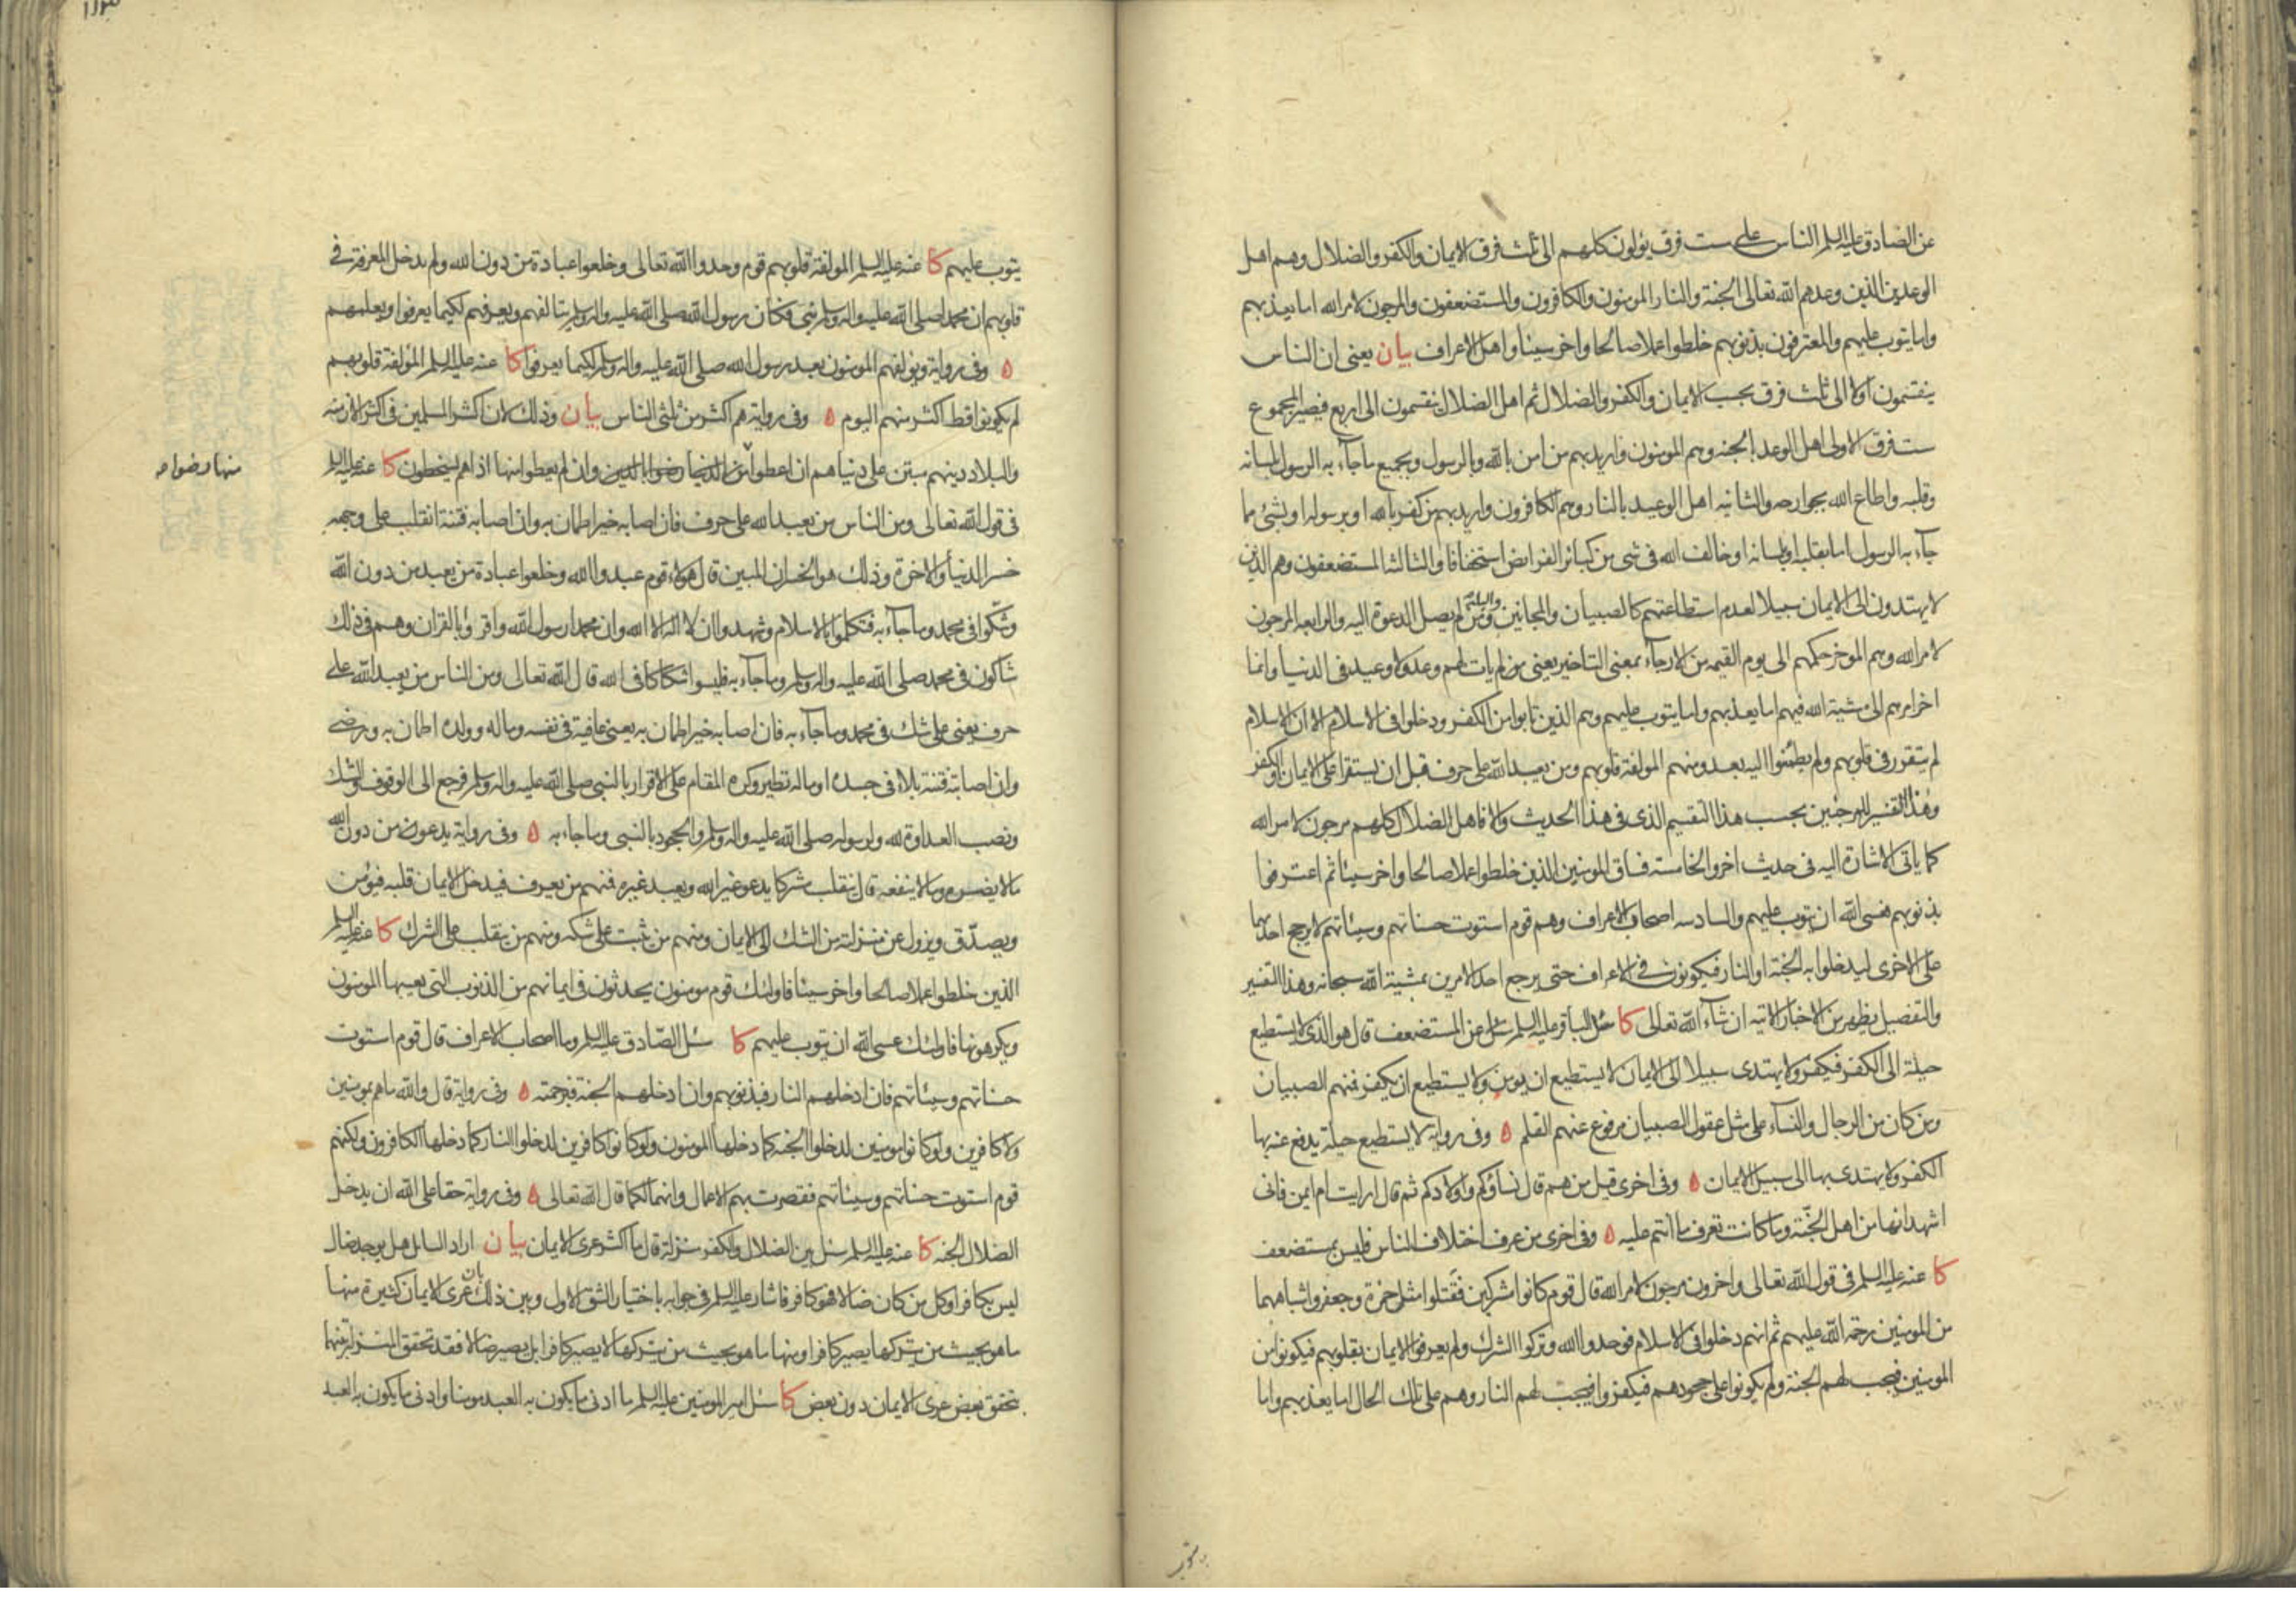 عن الصادق عليه السلم الناس على ست فرق يؤلون كلهم الى ثلث فرق الايمان والكفر والضلال وهم اهل
الوعدين الذين وعدهم الله تعالى الجنة والنار المومنون والكافرون والمستضعفون والمرجون لامر الله اما يعذبهم
واما يتوب عليهم والمعترفون بذنوبهم خلطوا عملا صالحا واخر سيئا واهل الاعراف بيان يعنى ان الناس
ينقسمون اولا الى ثلث فرق بحسب الايمان والكفر والضلال ثم اهل الضلال ينقسمون الى اربع فيصير المجموع
ست فرق الاولى اهل الوعد بالجنه وهم المومنون واريد بهم من امن بالله وبالرسول وبجميع ما جآء به الرسول بلسانه
وقلبه واطاع الله بجوارحه والثانيه اهل الوعيد بالنار وهم الكافرون واريد بهم من كفر بالله او برسوله او بشئ مما
جآء به الرسول اما بقلبه او بلسانه او خالف الله فى شى من كبائر الفرايض استخفافا والثالثه المستضعفون وهم الذين
لا يهتدون الى الايمان سبيلا لعدم استطاعتهم كالصبيان والمجانين والبله ومن لم يصل الدعوة اليه والرابعه المرجون
لامر الله وهم الموخر حكمهم الى يوم القيمه من الارجآء بمعنى التاخير يعنى من لم يات لهم وعد ولا وعيد فى الدنيا وانما
اخر امرهم الى مشية الله فيهم اما يعذبهم واما يتوب عليهم وهم الذين تابوا من الكفر ودخلوا فى الاسلام الا ان الاسلام
لم يتقرر فى قلوبهم ولم يطمئنوا اليه بعد ومنهم المولفة قلوبهم ومن يعبد الله على حرف قبل ان يستقرا على الايمان او الكفر
وهذا التفسير للمرجئين بحسب هذا التقسيم الذى فى هذا الحديث والا فاهل الضلال كلهم مرجون لامر الله
كما ياتى الاشارة اليه فى حديث اخر والخامسة فساق المومنين الذين خلطوا عملا صالحا واخر سيئا ثم اعترفوا
بذنوبهم فعسى الله ان يتوب عليهم والسادسه اصحاب الاعراف وهم قوم استوت حسناتهم وسيئاتهم لا يرجح احدهما
على الاخرى ليدخلوا به الجنة او النار فيكونون فى الاعراف حتى يرجح احد الامرين بمشية الله سبحانه وهذا التفسير
والتفصيل يظهر من الاخبار الاتيه ان شآء الله تعالى كا الباقر عليه السلم سئل عن المستضعف قال هو الذى لا يستطيع
حيلة الى الكفر فيكفر ولا يهتدى سبيلا الى الايمان لا يستطيع ان يومن ولا يستطيع ان يكفر فمنهم الصبيان
ومن كان من الرجال والنسآء على مثل عقول الصبيان مرفوع عنهم القلم ه وفى رواية لا يستطيع حيلة يدفع عنه بها
الكفر ولا يهتدى بها الى سبيل الايمان ه وفى اخرى قيل من هم قال نساؤكم واولادكم ثم قال ارايت ام ايمن فانى
اشهد انها من اهل الجنّة وما كانت تعرف ما انتم عليه ه وفى اخرى من عرف اختلاف الناس فليس بمستضعف
كا عنه عليه السلم فى قول الله تعالى واخرون مرجون لامر الله قال قوم كانوا مشركين فقتلوا مثل حمزة وجعفر واشباههما
من المومنين رحمة الله عليهم ثم انهم دخلوا فى الاسلام فوحدوا الله وتركوا الشرك ولم يعرفوا الايمان بقلوبهم فيكونوا من
المومنين فيجب لهم الجنة ولم يكونوا على جحودهم فيكفروا فيجب لهم النار وهم على تلك الحال اما يعذبهم واما
يتوب
يتوب عليهم كا عنه عليه السلم المولفة قلوبهم قوم وحدوا الله تعالى وخلعوا عبادة من دون الله ولم يدخل المعرفة فى
قلوبهم ان محمدا صلى الله عليه واله وسلم نبى فكان رسول الله صلى الله عليه واله وسلم يتالفهم ويعرفهم لكيما يعرفوا ويعلمهم
ه وفى رواية ويولفهم المومنون بعد رسول الله صلى الله عليه واله وسلم لكيما يعرفوا كا عنه عليه السلم المؤلفة قلوبهم
لم يكونوا قط اكثر منهم اليوم ه وفى رواية هم اكثر من ثلثى الناس بيان وذلك لان اكثر المسلمين فى اكثر الازمنه
والبلاد دينهم مبتن على دنياهم ان اعطوا من الدنيا رضوا بالدين وان لم يعطوا منها اذا هم يسخطون كا عنه عليه السلم
منها رضوا صح
فى قول الله تعالى ومن الناس من يعبد الله على حرف فان اصابه خير اطمان به وان اصابه فتنة انقلب على وجهه
خسر الدنيا والاخرة وذلك هو الخسران المبين قال هؤلاء قوم عبدوا الله وخلعوا عبادة من يعبد من دون الله
وشكّوا فى محمد وما جآء به فتكلموا بالاسلام وشهدوا ان لا اله الا الله وان محمدا رسول الله واقروا بالقران وهم فى ذلك
شاكون فى محمد صلى الله عليه واله وسلم وما جآء به فليسوا شكاكا فى الله قال الله تعالى ومن الناس من يعبد الله على
حرف يعنى على شك فى محمد وما جآء به فان اصابه خير اطمان به يعنى عافية فى نفسه وماله وولده اطمان به ورضى
وان اصابته فتنة بلاء فى جسده او ماله تطير وكره المقام على الاقرار بالنبى صلى الله عليه واله وسلم فرجع الى الوقوف والشك
ونصب العداوة لله ولرسوله صلى الله عليه واله وسلم والجحود بالنبى وما جاء به ه وفى رواية يدعون من دون الله
مالا يضره وما لا ينفعه قال ينقلب مشركا يدعو غير الله ويعبد غيره فمنهم من يعرف فيدخل الايمان قلبه فيؤمن
ويصدّق ويزول عن منزلته من الشك الى الايمان ومنهم من يثبت على شكه ومنهم من ينقلب على الشرك كا عنه عليه السلم
الذين خلطوا عملا صالحا واخر سيئا فاولئك قوم مومنون يحدثون فى ايمانهم من الذنوب التى يعيبها المومنون
ويكرهونها فاولئك عسى الله ان يتوب عليهم كا سئل الصّادق عليه السلم وما اصحاب الاعراف قال قوم استوت
حسناتهم وسيئاتهم فان ادخلهم النار فبذنوبهم وان ادخلهم الجنة فبرحمته ه وفى رواية قال والله ما هم بمومنين
ولا كافرين ولو كانوا مومنين لدخلوا الجنه كما دخلها المومنون ولو كانوا كافرين لدخلوا النار كما دخلها الكافرون ولكنهم
قوم استوت حسناتهم وسيئاتهم فقصرت بهم الاعمال وانهم لكما قال الله تعالى ه وفى رواية حقا على الله ان يدخل
الضلال الجنه كا عنه عليه السلم سئل بين الضلال والكفر منزلة قال ما اكثر عرى الايمان بيان اراد السائل هل يوجد ضال
ليس بكافر او كل من كان ضالا فهو كافر فاشار عليه السلم فى جوابه باختيار الشق الاول وبين ذلك بان عرى الايمان كثيرة منها
ما هو بحيث من يتركها يصير كافرا ومنها ما هو بحيث من يتركها لا يصير كافرا بل يصير ضالا فقد تحقق المنزلة بينهما
بتحقق بعض عرى الايمان دون بعض كا سئل امير المومنين عليه السلم ما ادنى ما يكون به العبد مومنا وادنى ما يكون به العبد